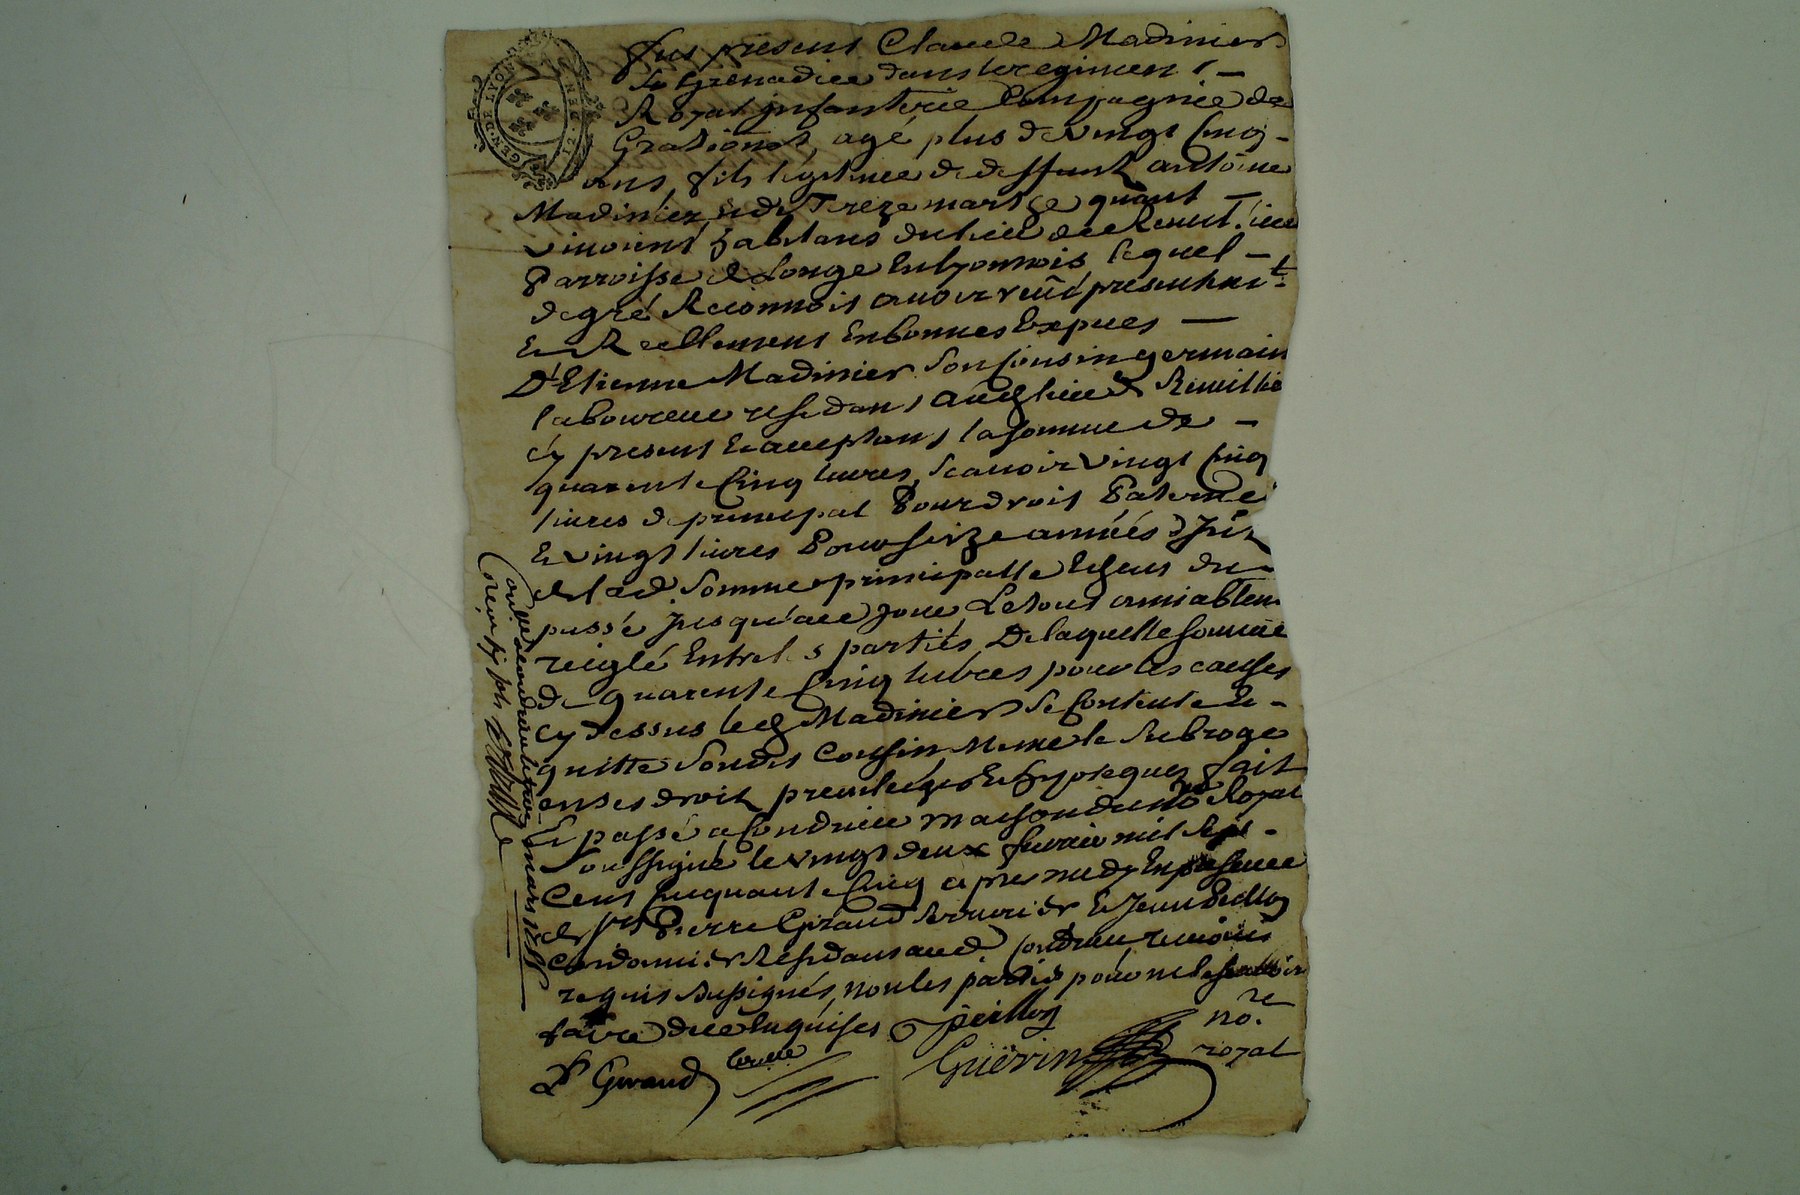 GEN. DE LYON
Fut present Claude Madinier
Grenadier dans le regiment
Royal infanterie Compagnie de
agé plus de vingt Cinq
ans, fils legitime de deffunt antoine
Madinier treize mars quant
vivoient habitans du lieu de
Parroisse de Longe En lyonnois lequel
de gré Reconnoit avoir reçu presentemt
Et Reellement En bonnes Espuces
D'Etienne Madinier Son Cousin germain
laboureur residant audt lieu de
cy present Et acceptant la somme de
quarente Cinq livres, scavoir vingt Cinq
livres de principal Pour droit Paternel
Et vingt livres Pour seize années
de lad somme principalle du
passé jusqu'a ce jour Le tout amiablem
reiglé Entre les parties, De laquelle somme
de quarente Cinq livres pour les causes
cy dessus led Madinier Se Contente Et
quitte Sondit Cousin Meme le Subroge
en ses droit privileges Et hypoteques fait
Et passé a Condrieu maison du nore Royal
soussigné le vingt deux fevrier mil Sept
Cent Cinquante Cinq apres midy En presence
de Pierre Giraud serrurier Et Jean Peillon
Cordonnier Residans aud Condrieu temoins
requis sousignés, non les parties pour ne le scavoir
faire de ce Enquises Peillon
P Giraud
Guërin nore
royal
Conlle a Condrieu le mars 1755